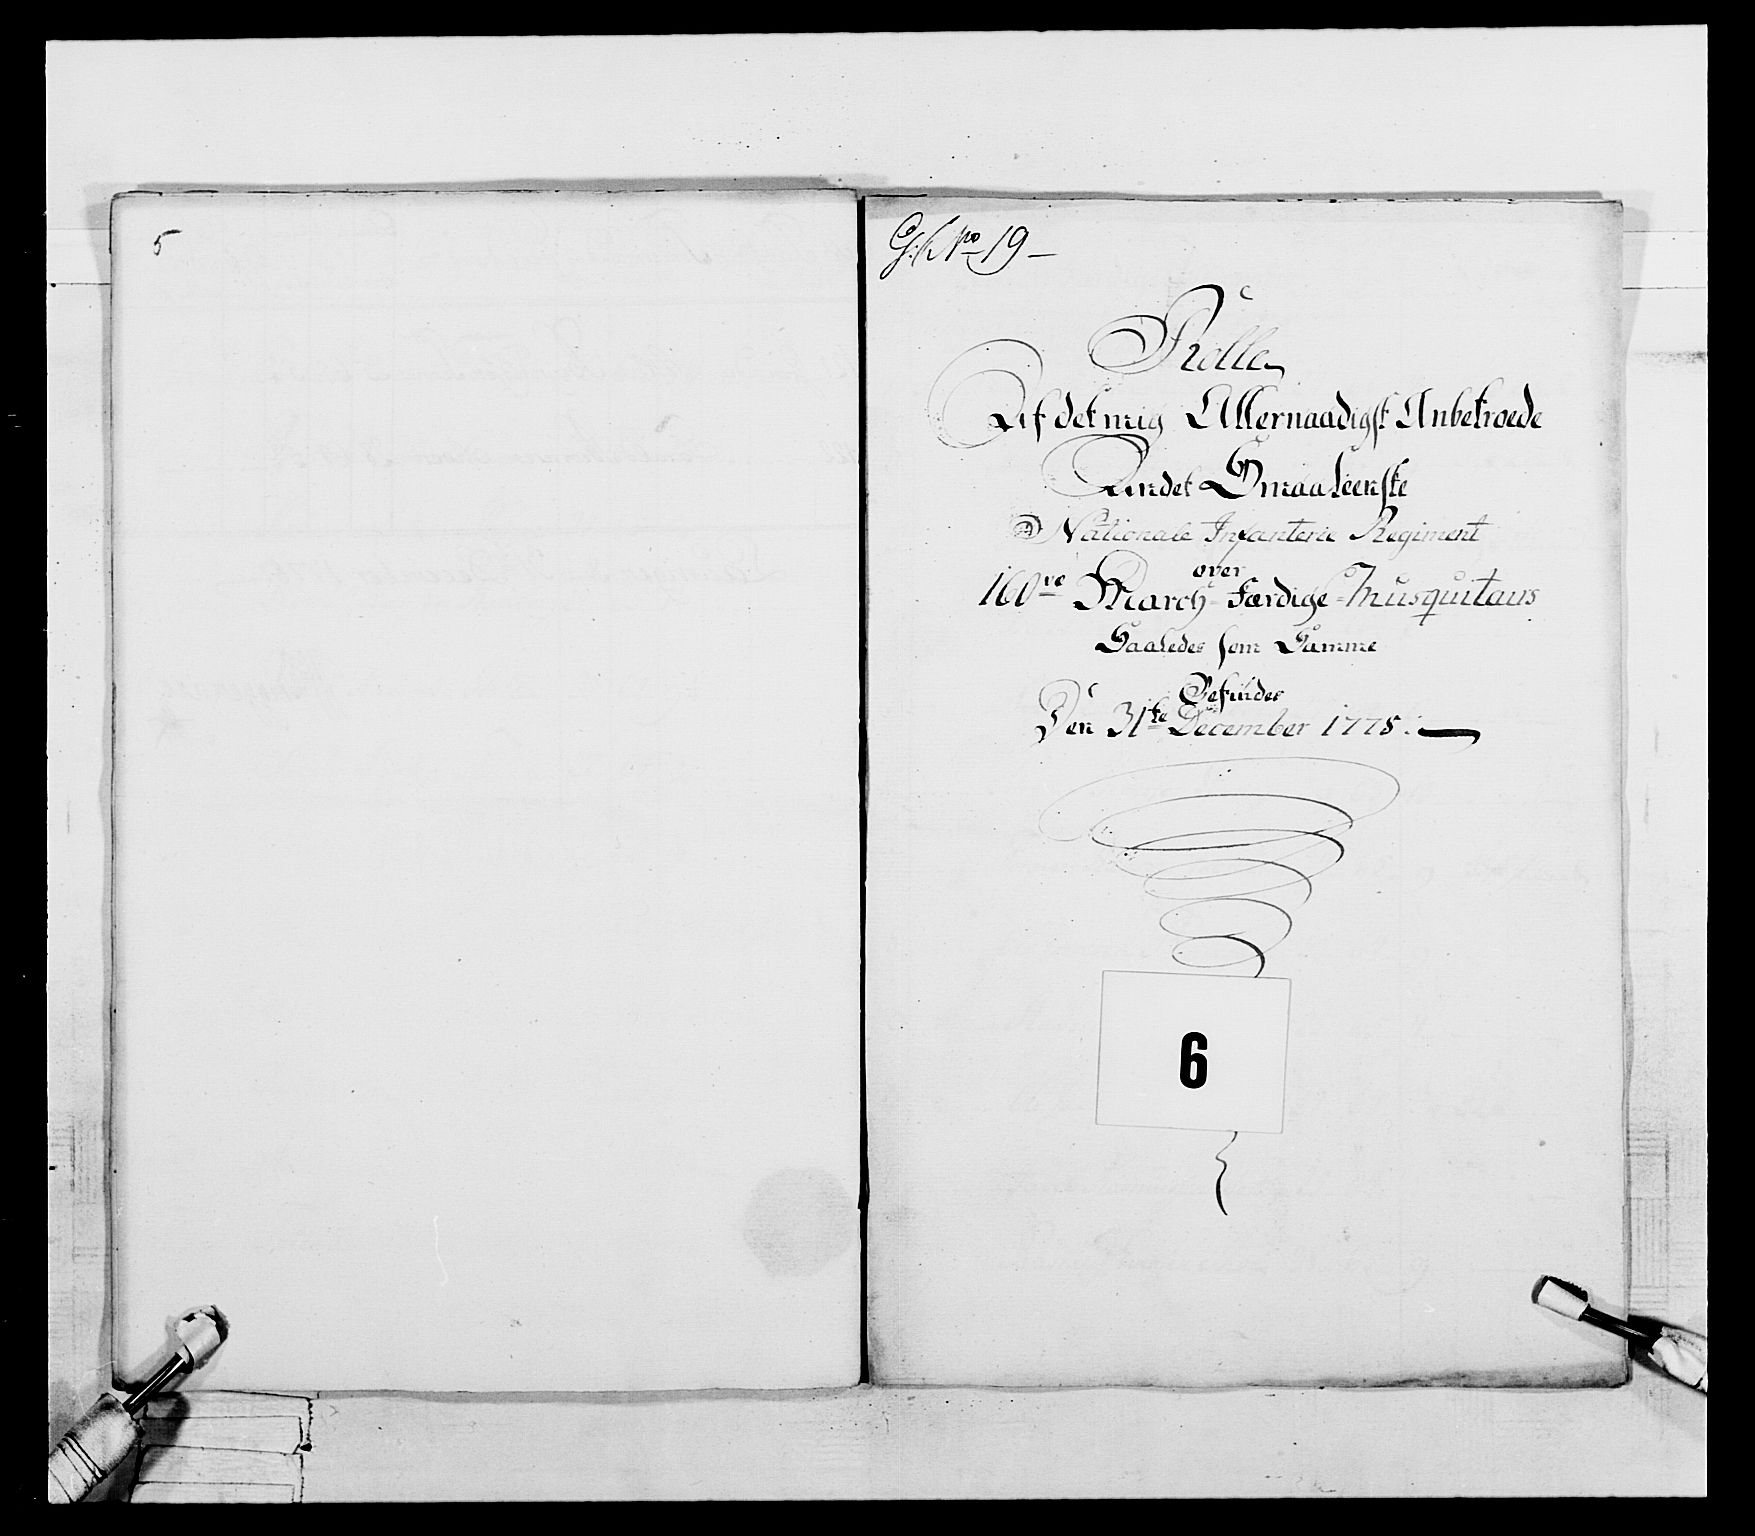 5
No 19
Rolle
Af det mig Allernaadigst Anbetroede
Andet Smaaleenske
Nationale Infanterie Regiment
over
160ve March-Færdige-Musquitairs
Saaledes som Samme
Befindes
Den 31te December 1775.
6